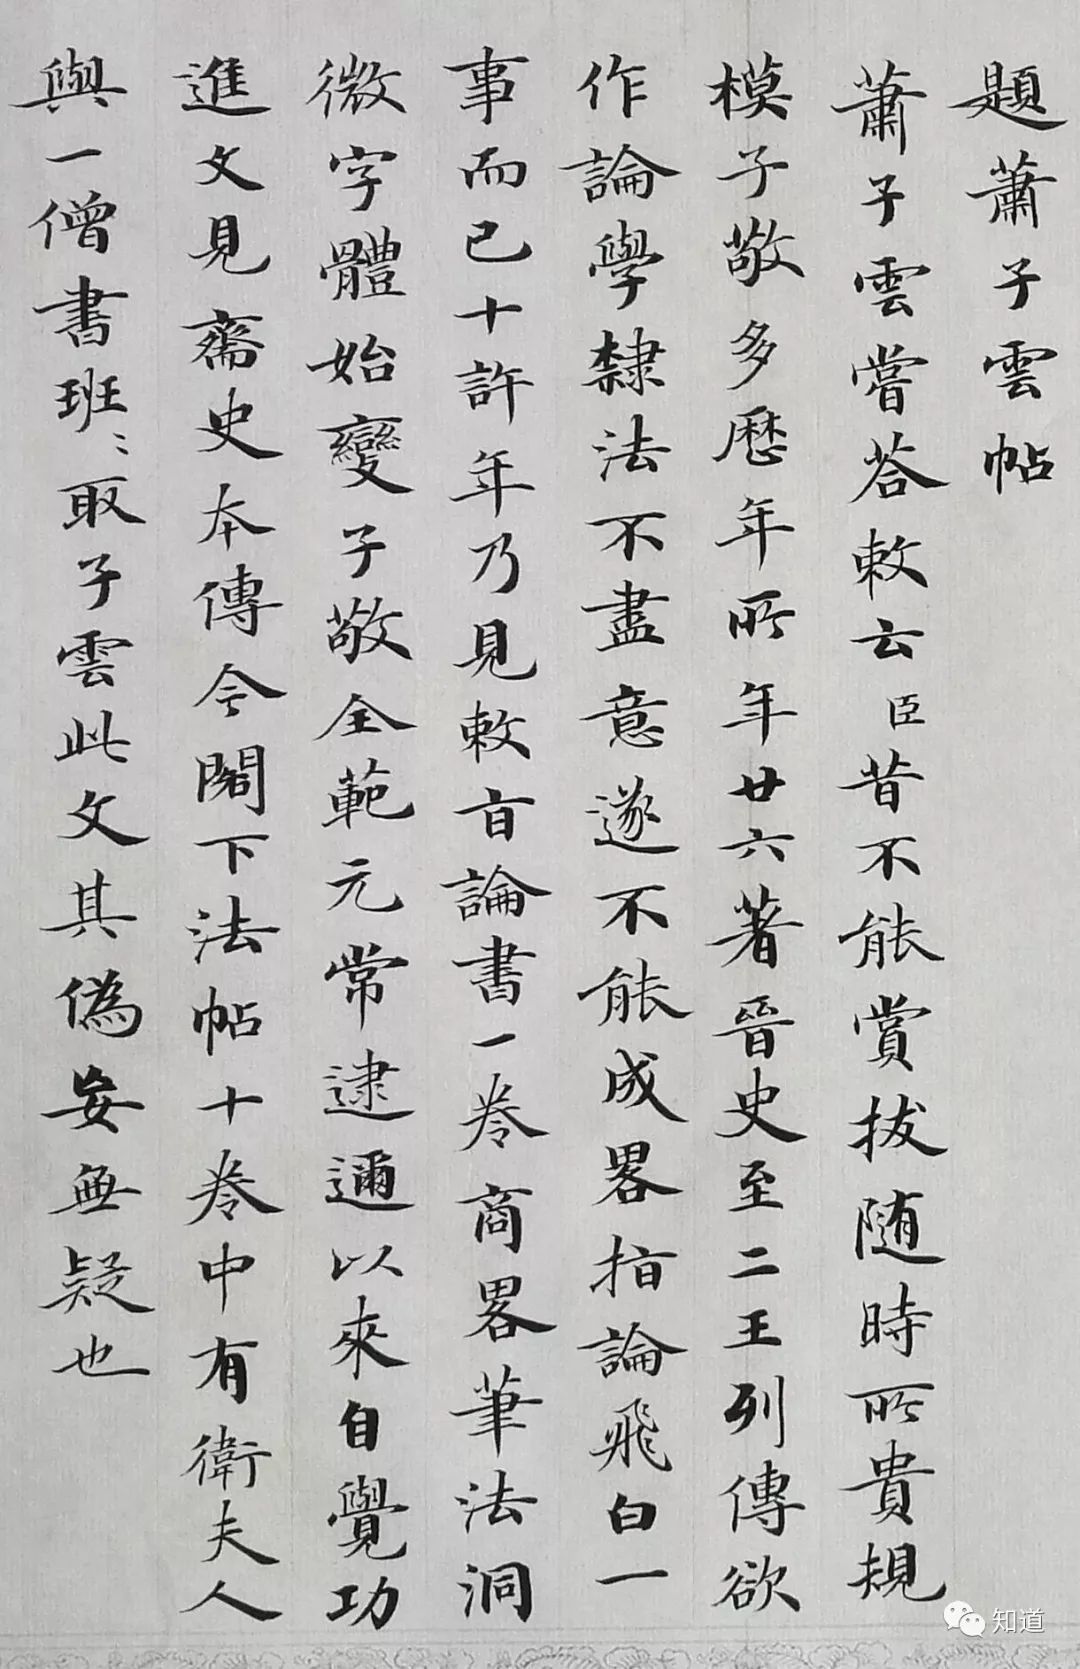 題蕭子雲帖
蕭子雲嘗荅敕云臣昔不能賞拔随時所貴規
模子敬多歷年所年廿六著晉史至二王列傳欲
作論學隸法不盡意遂不能成畧指論飛白一
事而已十許年乃見敕旨論書一卷商畧筆法洞
微字體始變子敬全範元常逮邇以來自覺功
進文見齋史本傳今閣下法帖十卷中有衛夫人
與一僧書班〻取子雲此文其偽妄無疑也
知道